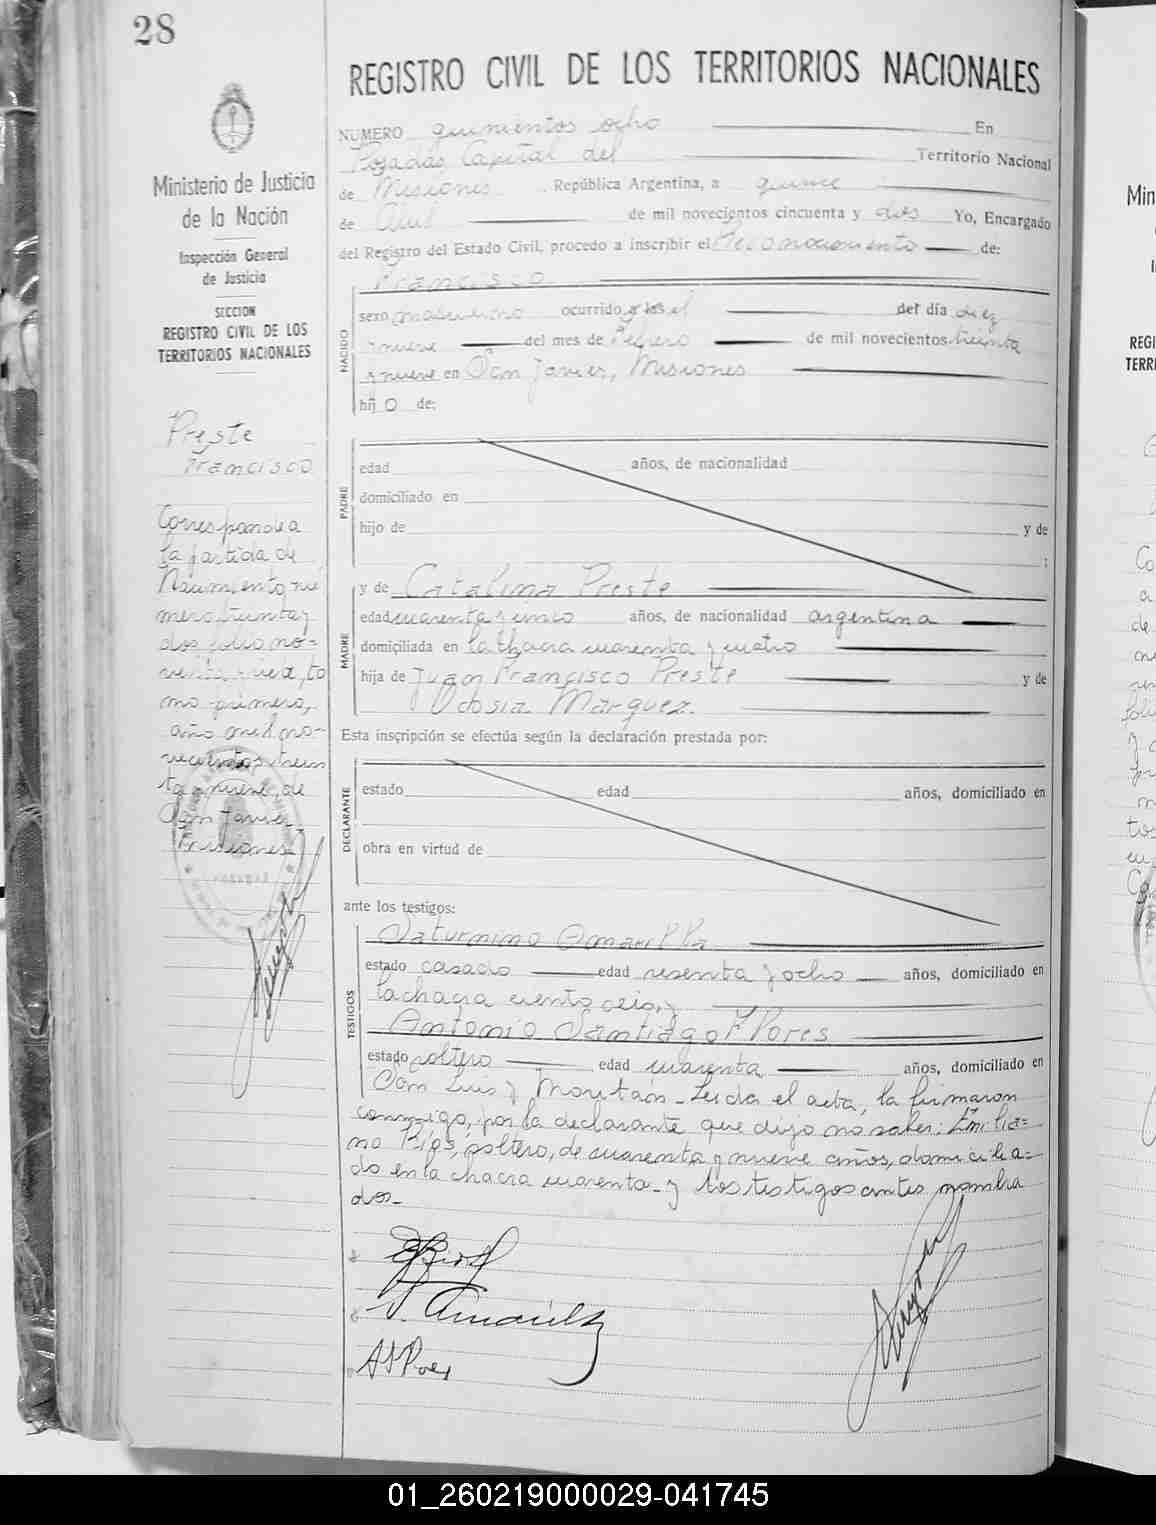 28
Ministerio de Justicia
de la Nación
Inspección General
de Justicia
SECCION
REGISTRO CIVIL DE LOS
TERRITORIOS NACIONALES
Preste
Francisco
Corresponde a
la partida de
Nacimiento nú
mero treinta y
dos folio no-
venta y , to
mo primero,
año mil no-
vecientos trein
ta y nueve, de
San Javier
Misiones
REGISTRO CIVIL DE LOS TERRITORIOS NACIONALES
NUMERO quinientos ocho En
Posadas Capital del Territorio Nacional
de Misiones República Argentina, a quince
de Abril de mil novecientos cincuenta y dos Yo, Encargado
del Registro del Estado Civil, procedo a inscribir el Reconocimiento de:
Francisco
NACIDO
sexo masculino ocurrido a las el del día diez
y nueve del mes de Febrero de mil novecientos treinta
y nueve en San Javier, Misiones
hijo de:
PADRE
edad años, de nacionalidad
domiciliado en
hijo de y de
:
MADRE
y de Catalina Preste
edad cuarenta y cinco años, de nacionalidad argentina
domiciliada en la chacra cuarenta y cuatro
hija de Juan Francisco Preste y de
Udosia Márquez.
Esta inscripción se efectúa según la declaración prestada por:
DECLARANTE
estado edad años, domiciliado en
obra en virtud de
ante los testigos:
TESTIGOS
Saturnino Amarilla
estado casado edad sesenta y ocho años, domiciliado en
la chacra ciento seis, y
Antonio Santiago Flores
estado soltero edad cuarenta años, domiciliado en
San Luis y Moritán - Leída el acta, la firmaron
conmigo, por la declarante que dijo no saber: Emilia=
no Ríos, soltero, de cuarenta y nueve años, domicilia=
do en la chacra cuarenta - y los testigos antes nombra
dos -
S. Amarilla
01_260219000029-041745